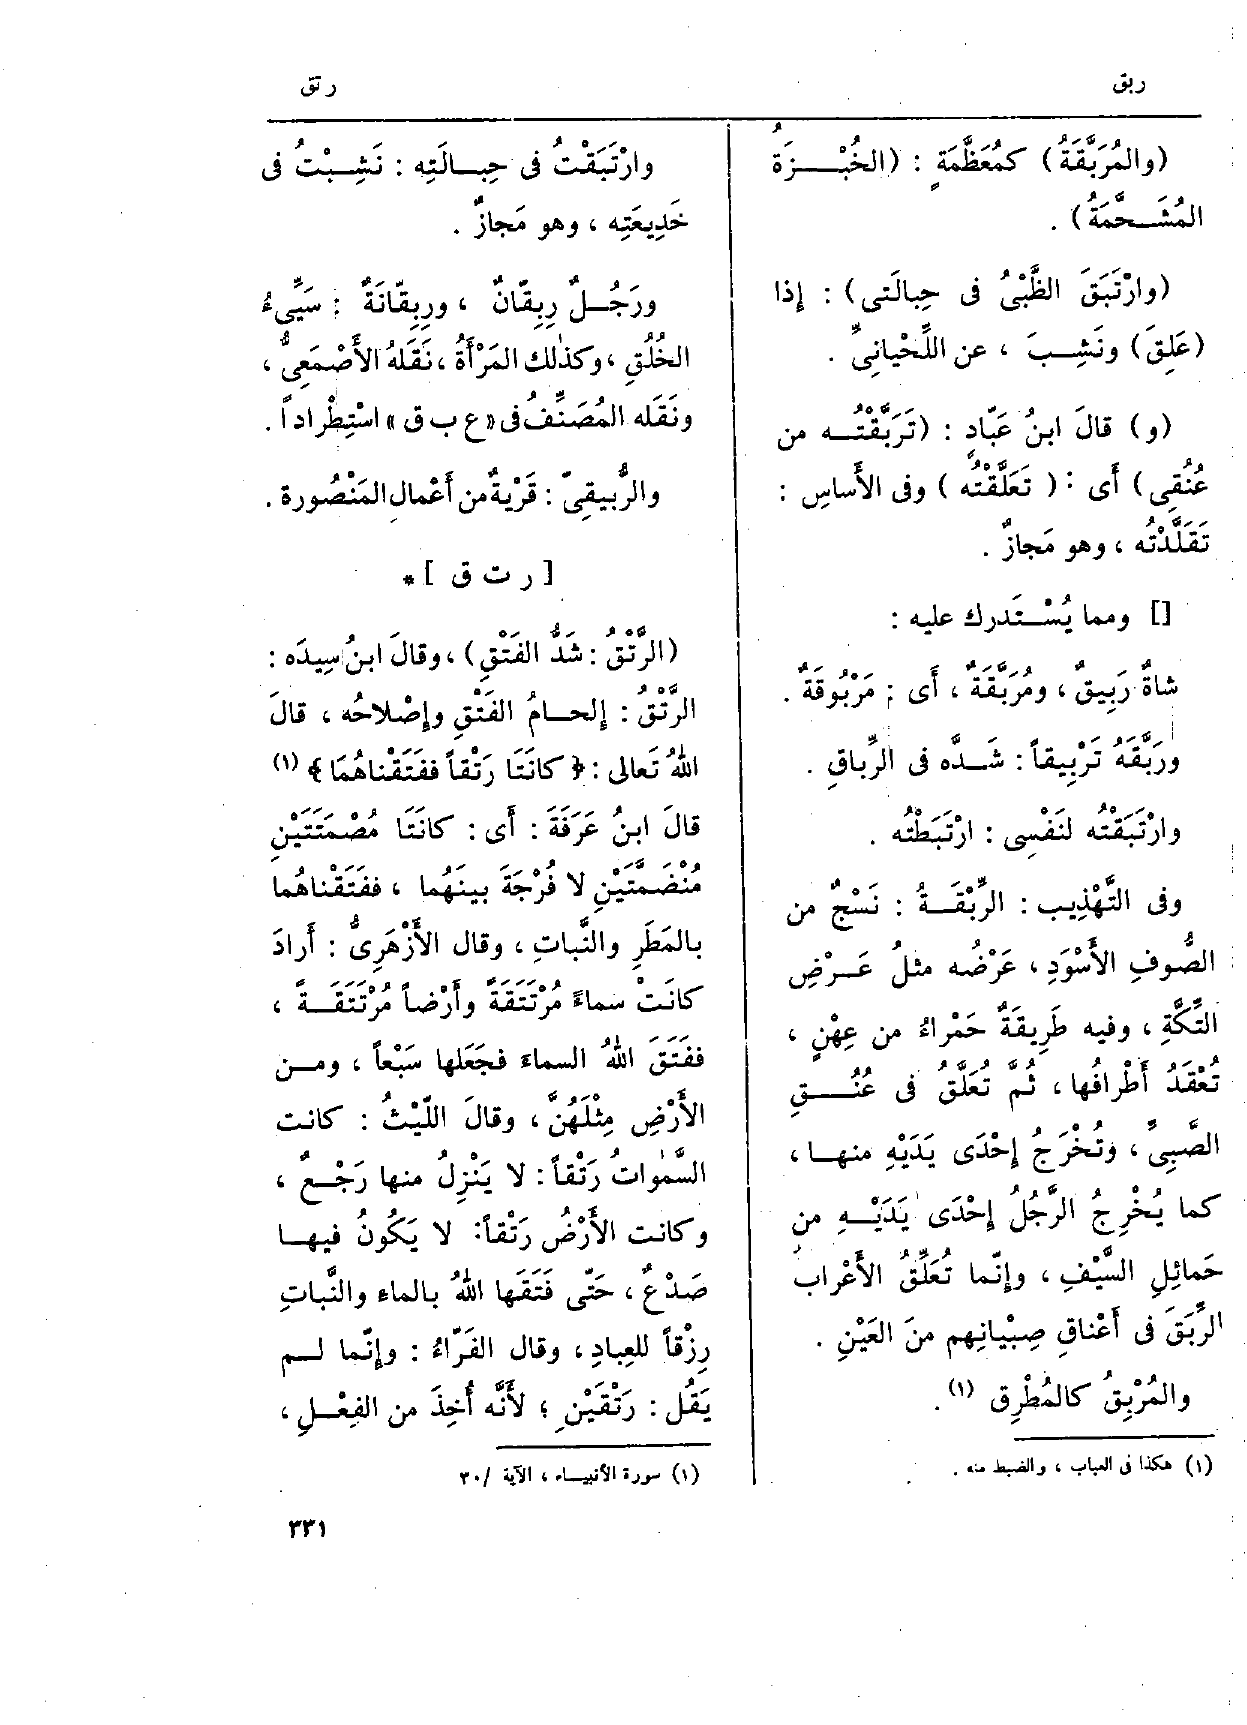 ربق
رتق
(والمُرَبَّقَةُ) كمُعَظَّمَةٍ : (الخُبْـــزَةُ
المُشَـحَّمَةُ) .
(وارْتَبَقَ الظَّبْىُ فى حِبالَتى) : إذا
(عَلِقَ) ونَشِـبَ ، عن اللِّحْيانِىِّ .
(و) قالَ ابنُ عَبّادٍ : (تَرَبَّقْتُـه من
عُنُقِى) أى : ( تَعَلَّقْتُه ) وفى الأَساسِ :
تَقَلَّدْتُه ، وهو مَجازٌ .
[] ومما يُسْـتَدرك عليه :
شاةٌ رَبِيقٌ ، ومُرَبَّقَةٌ ، أى : مَرْبُوقَةٌ .
ورَبَّقَهُ تَرْبِيقاً : شَـدَّه فى الرِّباقِ .
وارْتَبَقْتُه لنَفْسِى : ارْتَبَطْتُه .
وفى التَّهْذِيبِ : الرِّبْقَـةُ : نَسْجٌ من
الصُّوفِ الأَسْوَدِ ، عَرْضُه مثلُ عَـرْضِ
التِّكَّةِ ، وفيه طَرِيقَةٌ حَمْراءُ من عِهْنٍ ،
تُعْقَدُ أَطْرافُها ، ثُمَّ تُعَلَّقُ فى عُنُــقِ
الصَّبِىِّ ، وتُخْرَجُ إِحْدَى يَدَيْهِ منهـا ،
كما يُخْرِجُ الرَّجُلُ إِحْدَى يَدَيْـهِ من
حَمائِلِ السَّيْفِ ، وإِنَّما تُعَلِّقُ الأَعْرابُ
الرِّبَقَ فى أَعْناقِ صِبْيانِهم منَ العَيْنِ .
والمُرْبِقُ كالمُطْرِق (١) .
(١) هكذا فى العباب ، والضبط منه .
وارْتَبَقْتُ فى حِبـالَتِه : نَشِـبْتُ فى
خَدِيعَتِه ، وهو مَجازٌ .
ورَجُـلٌ رِبِقّانٌ ، ورِبِقّانَةٌ : سَيِّىءُ
الخُلُقِ ، وكذلك المَرْأَةُ ، نَقَلَهُ الأَصْمَعِىُّ ،
ونَقَله المُصَنِّفُ فى «ع ب ق» اسْتِطْراداً .
والرُّبيقِىّ : قَرْيَةٌ من أَعْمال المَنْصُورة .
[ ر ت ق ] *
(الرَّتْقُ : شَدُّ الفَتْقِ) ، وقالَ ابنُ سِيدَه :
الرَّتْقُ : إِلحـامُ الفَتْقِ وإِصْلاحُه ، قالَ
اللهُ تَعالى : ﴿ كانَتَا رَتْقاً ففَتَقْناهُمَا ﴾ (١)
قالَ ابنُ عَرَفَةَ : أى : كانَتَا مُصْمَتَتَيْنِ
مُنْضَمَّتَيْنِ لا فُرْجَةَ بينَهُما ، ففَتَقْناهُما
بالمَطَرِ والنَّباتِ ، وقال الأَزْهَرِىُّ : أَرادَ
كانَتْ سماءً مُرْتَتِقَةً وأَرْضاً مُرْتَتِقَـةً ،
ففَتَقَ اللهُ السماءَ فجَعَلها سَبْعاً ، ومـن
الأَرْضِ مِثْلَهُنَّ ، وقالَ اللَّيْثُ : كانت
السَّمٰواتُ رَتْقاً : لا يَنْزِلُ منها رَجْـعٌ ،
وكانت الأَرْضُ رَتْقاً: لا يَكُونُ فيهـا
صَدْعٌ ، حَتّى فَتَقَها اللهُ بالماءِ والنَّباتِ
رِزْقاً للعِبادِ ، وقال الفَرّاءُ : وإِنّما لـم
يَقُل : رَتْقَيْنِ ؛ لأَنَّه أُخِذَ من الفِعْـلِ ،
(١) سورة الأنبيـاء ، الآية /٣٠
٣٣١